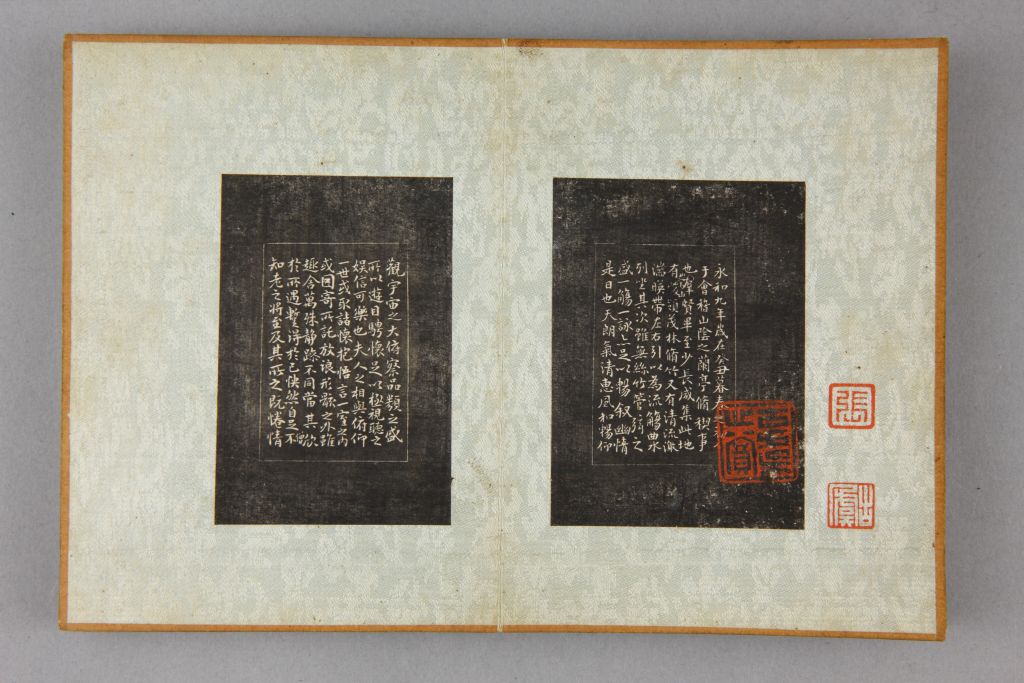 永和九年歲在癸丑暮春之初
于會稽山陰之蘭亭脩禊事
也羣賢畢至少長咸集此地
有峻領茂林脩竹又有清流激
湍暎帶左右引以為流觴曲水
列坐其次雖無絲竹管弦之
盛一觴一詠亦足以暢叙幽情
是日也天朗氣清惠風和暢仰
觀宇宙之大俯察品類之盛
所以遊目騁懷足以極視聽之
娱信可樂也夫人之相與俯仰
一世或取諸懷抱悟言一室之內
或因寄所託放浪形骸之外雖
趣舍萬殊静躁不同當其欣
於所遇暫得於己怏然自足不
知老之將至及其所之既惓情
張